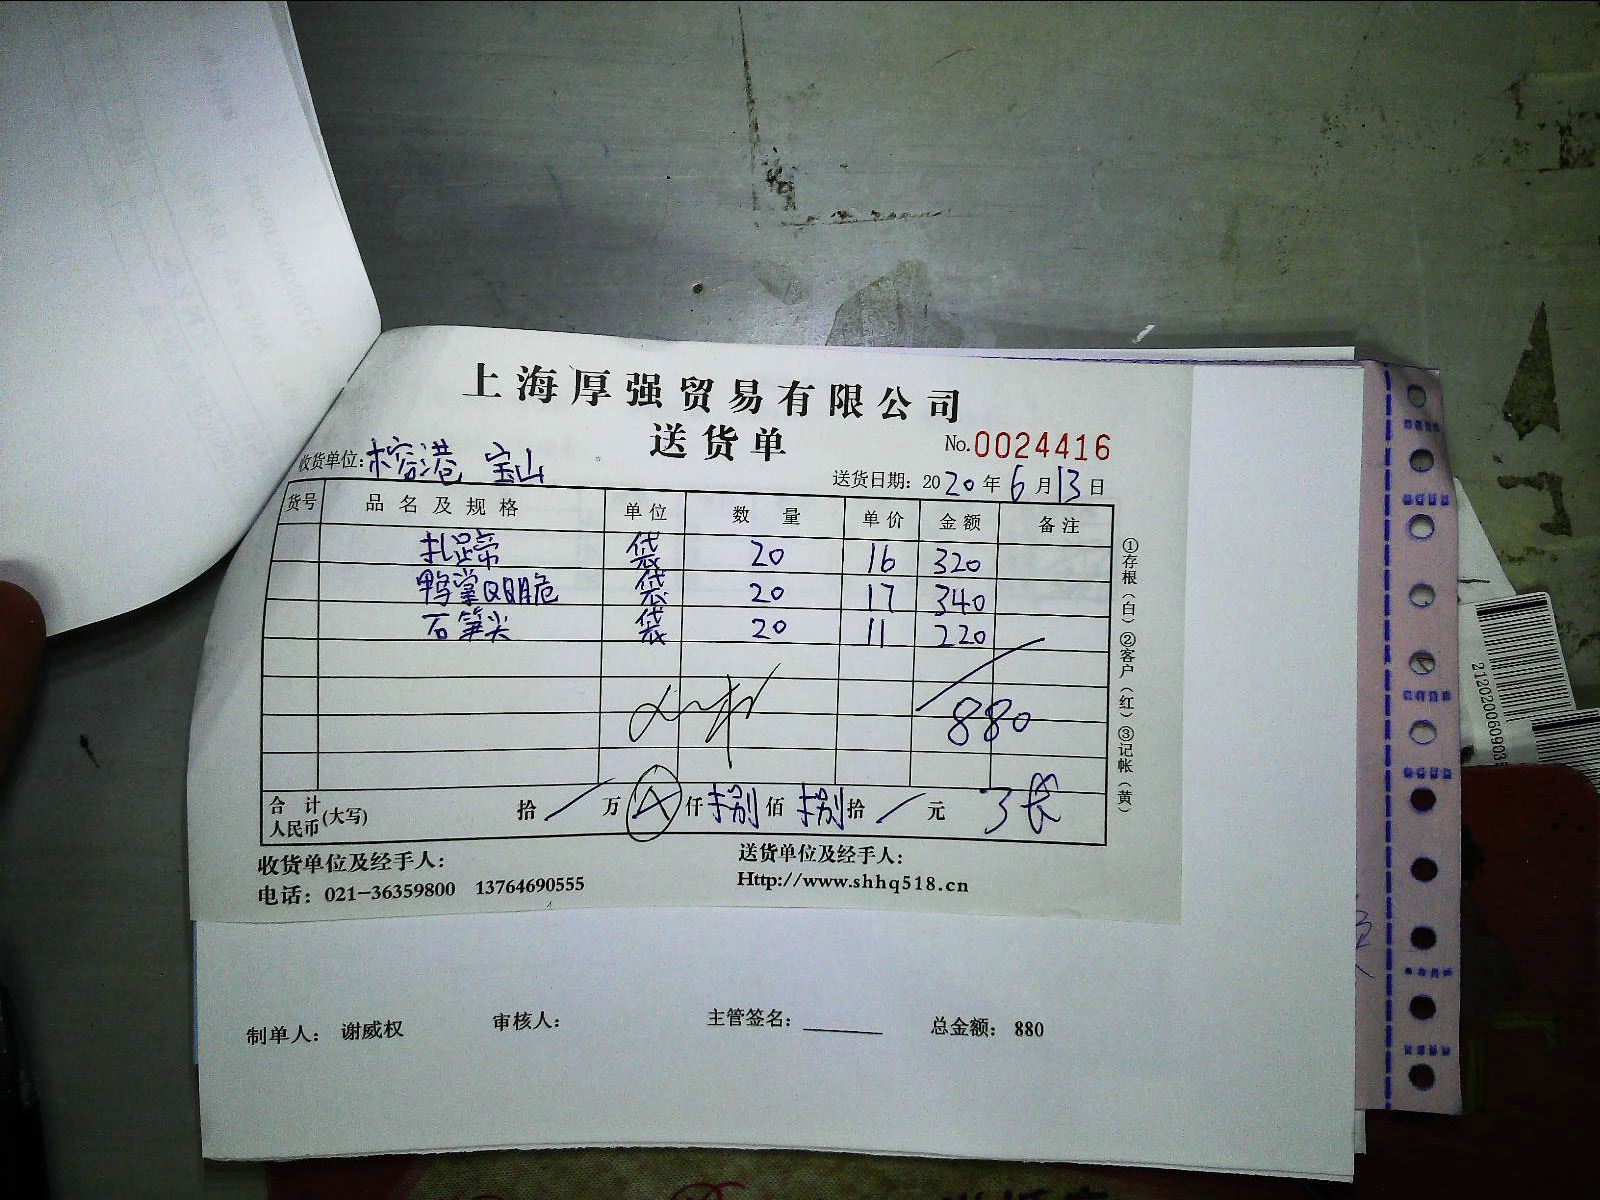 上海厚强贸易有限公司
送货单
No.0024416
收货单位:榕港 宝山
送货日期: 2020年6月13日
货号 品名及规格 单位 数量 单价 金额 备注
扎蹄 袋 20 16 320
鸭掌 袋 20 17 340
石笋尖 袋 20 11 220
880
合计人民币(大写) 拾 / 万 仟 捌 佰 捌 拾 / 元
①存根(白)②客户(红)③记帐(黄)
收货单位及经手人: 送货单位及经手人:
电话: 021-36359800 13764690555 Http://www.shhq518.cn
制单人: 谢威权 审核人: 主管签名: 总金额: 880